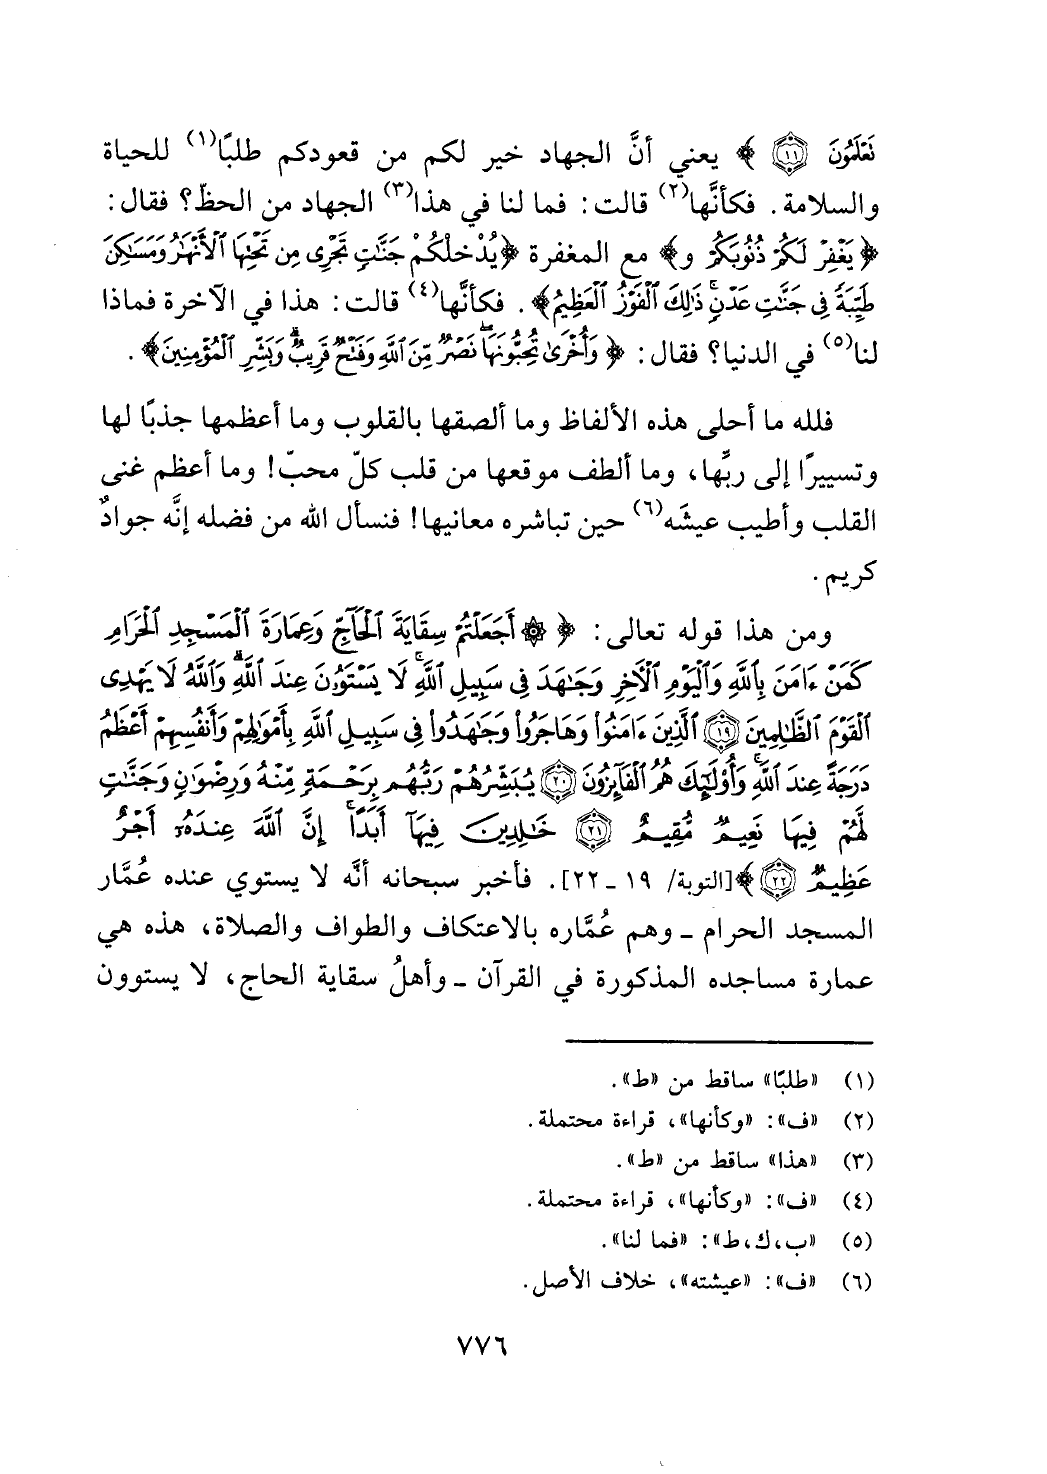 نَعْلَمُونَ ﴿١١﴾ ﴾ يعني أنَّ الجهاد خير لكم من قعودكم طلبًا(١) للحياة
والسلامة. فكأنَّها(٢) قالت: فما لنا في هذا(٣) الجهاد من الحظّ؟ فقال:
﴿يَغْفِرْ لَكُمْ ذُنُوبَكُمْ و﴾ مع المغفرة ﴿يُدْخِلْكُمْ جَنَّاتٍ تَجْرِى مِن تَحْتِهَا ٱلْأَنْهَٰرُ وَمَسَٰكِنَ
طَيِّبَةً فِى جَنَّٰتِ عَدْنٍ ۚ ذَٰلِكَ ٱلْفَوْزُ ٱلْعَظِيمُ﴾. فكأنَّها(٤) قالت: هذا في الآخرة فماذا
لنا(٥) في الدنيا؟ فقال: ﴿وَأُخْرَىٰ تُحِبُّونَهَا ۖ نَصْرٌ مِّنَ ٱللَّهِ وَفَتْحٌ قَرِيبٌ ۗ وَبَشِّرِ ٱلْمُؤْمِنِينَ﴾.
فلله ما أحلى هذه الألفاظ وما ألصقها بالقلوب وما أعظمها جذبًا لها
وتسييرًا إلى ربِّها، وما ألطف موقعها من قلب كلّ محبّ! وما أعظم غنى
القلب وأطيب عيشَه(٦) حين تباشره معانيها! فنسأل الله من فضله إنَّه جوادٌ
كريم.
ومن هذا قوله تعالى: ﴿ ۞ أَجَعَلْتُمْ سِقَايَةَ ٱلْحَآجِّ وَعِمَارَةَ ٱلْمَسْجِدِ ٱلْحَرَامِ
كَمَنْ ءَامَنَ بِٱللَّهِ وَٱلْيَوْمِ ٱلْأَخِرِ وَجَٰهَدَ فِى سَبِيلِ ٱللَّهِ ۚ لَا يَسْتَوُۥنَ عِندَ ٱللَّهِ ۗ وَٱللَّهُ لَا يَهْدِى
ٱلْقَوْمَ ٱلظَّٰلِمِينَ ﴿١٩﴾ ٱلَّذِينَ ءَامَنُوا۟ وَهَاجَرُوا۟ وَجَٰهَدُوا۟ فِى سَبِيلِ ٱللَّهِ بِأَمْوَٰلِهِمْ وَأَنفُسِهِمْ أَعْظَمُ
دَرَجَةً عِندَ ٱللَّهِ ۚ وَأُو۟لَٰٓئِكَ هُمُ ٱلْفَآئِزُونَ ﴿٢٠﴾ يُبَشِّرُهُمْ رَبُّهُم بِرَحْمَةٍ مِّنْهُ وَرِضْوَٰنٍ وَجَنَّٰتٍ
لَّهُمْ فِيهَا نَعِيمٌ مُّقِيمٌ ﴿٢١﴾ خَٰلِدِينَ فِيهَآ أَبَدًا ۚ إِنَّ ٱللَّهَ عِندَهُۥٓ أَجْرٌ
عَظِيمٌ ﴿٢٢﴾ ﴾ [التوبة/ ١٩ - ٢٢]. فأخبر سبحانه أنَّه لا يستوي عنده عُمَّار
المسجد الحرام - وهم عُمَّاره بالاعتكاف والطواف والصلاة، هذه هي
عمارة مساجده المذكورة في القرآن - وأهلُ سقاية الحاج، لا يستوون
(١) «طلبًا» ساقط من «ط».
(٢) «ف»: «وكأنها»، قراءة محتملة.
(٣) «هذا» ساقط من «ط».
(٤) «ف»: «وكأنها»، قراءة محتملة.
(٥) «ب،ك،ط»: «فما لنا».
(٦) «ف»: «عيشته»، خلاف الأصل.
٧٧٦